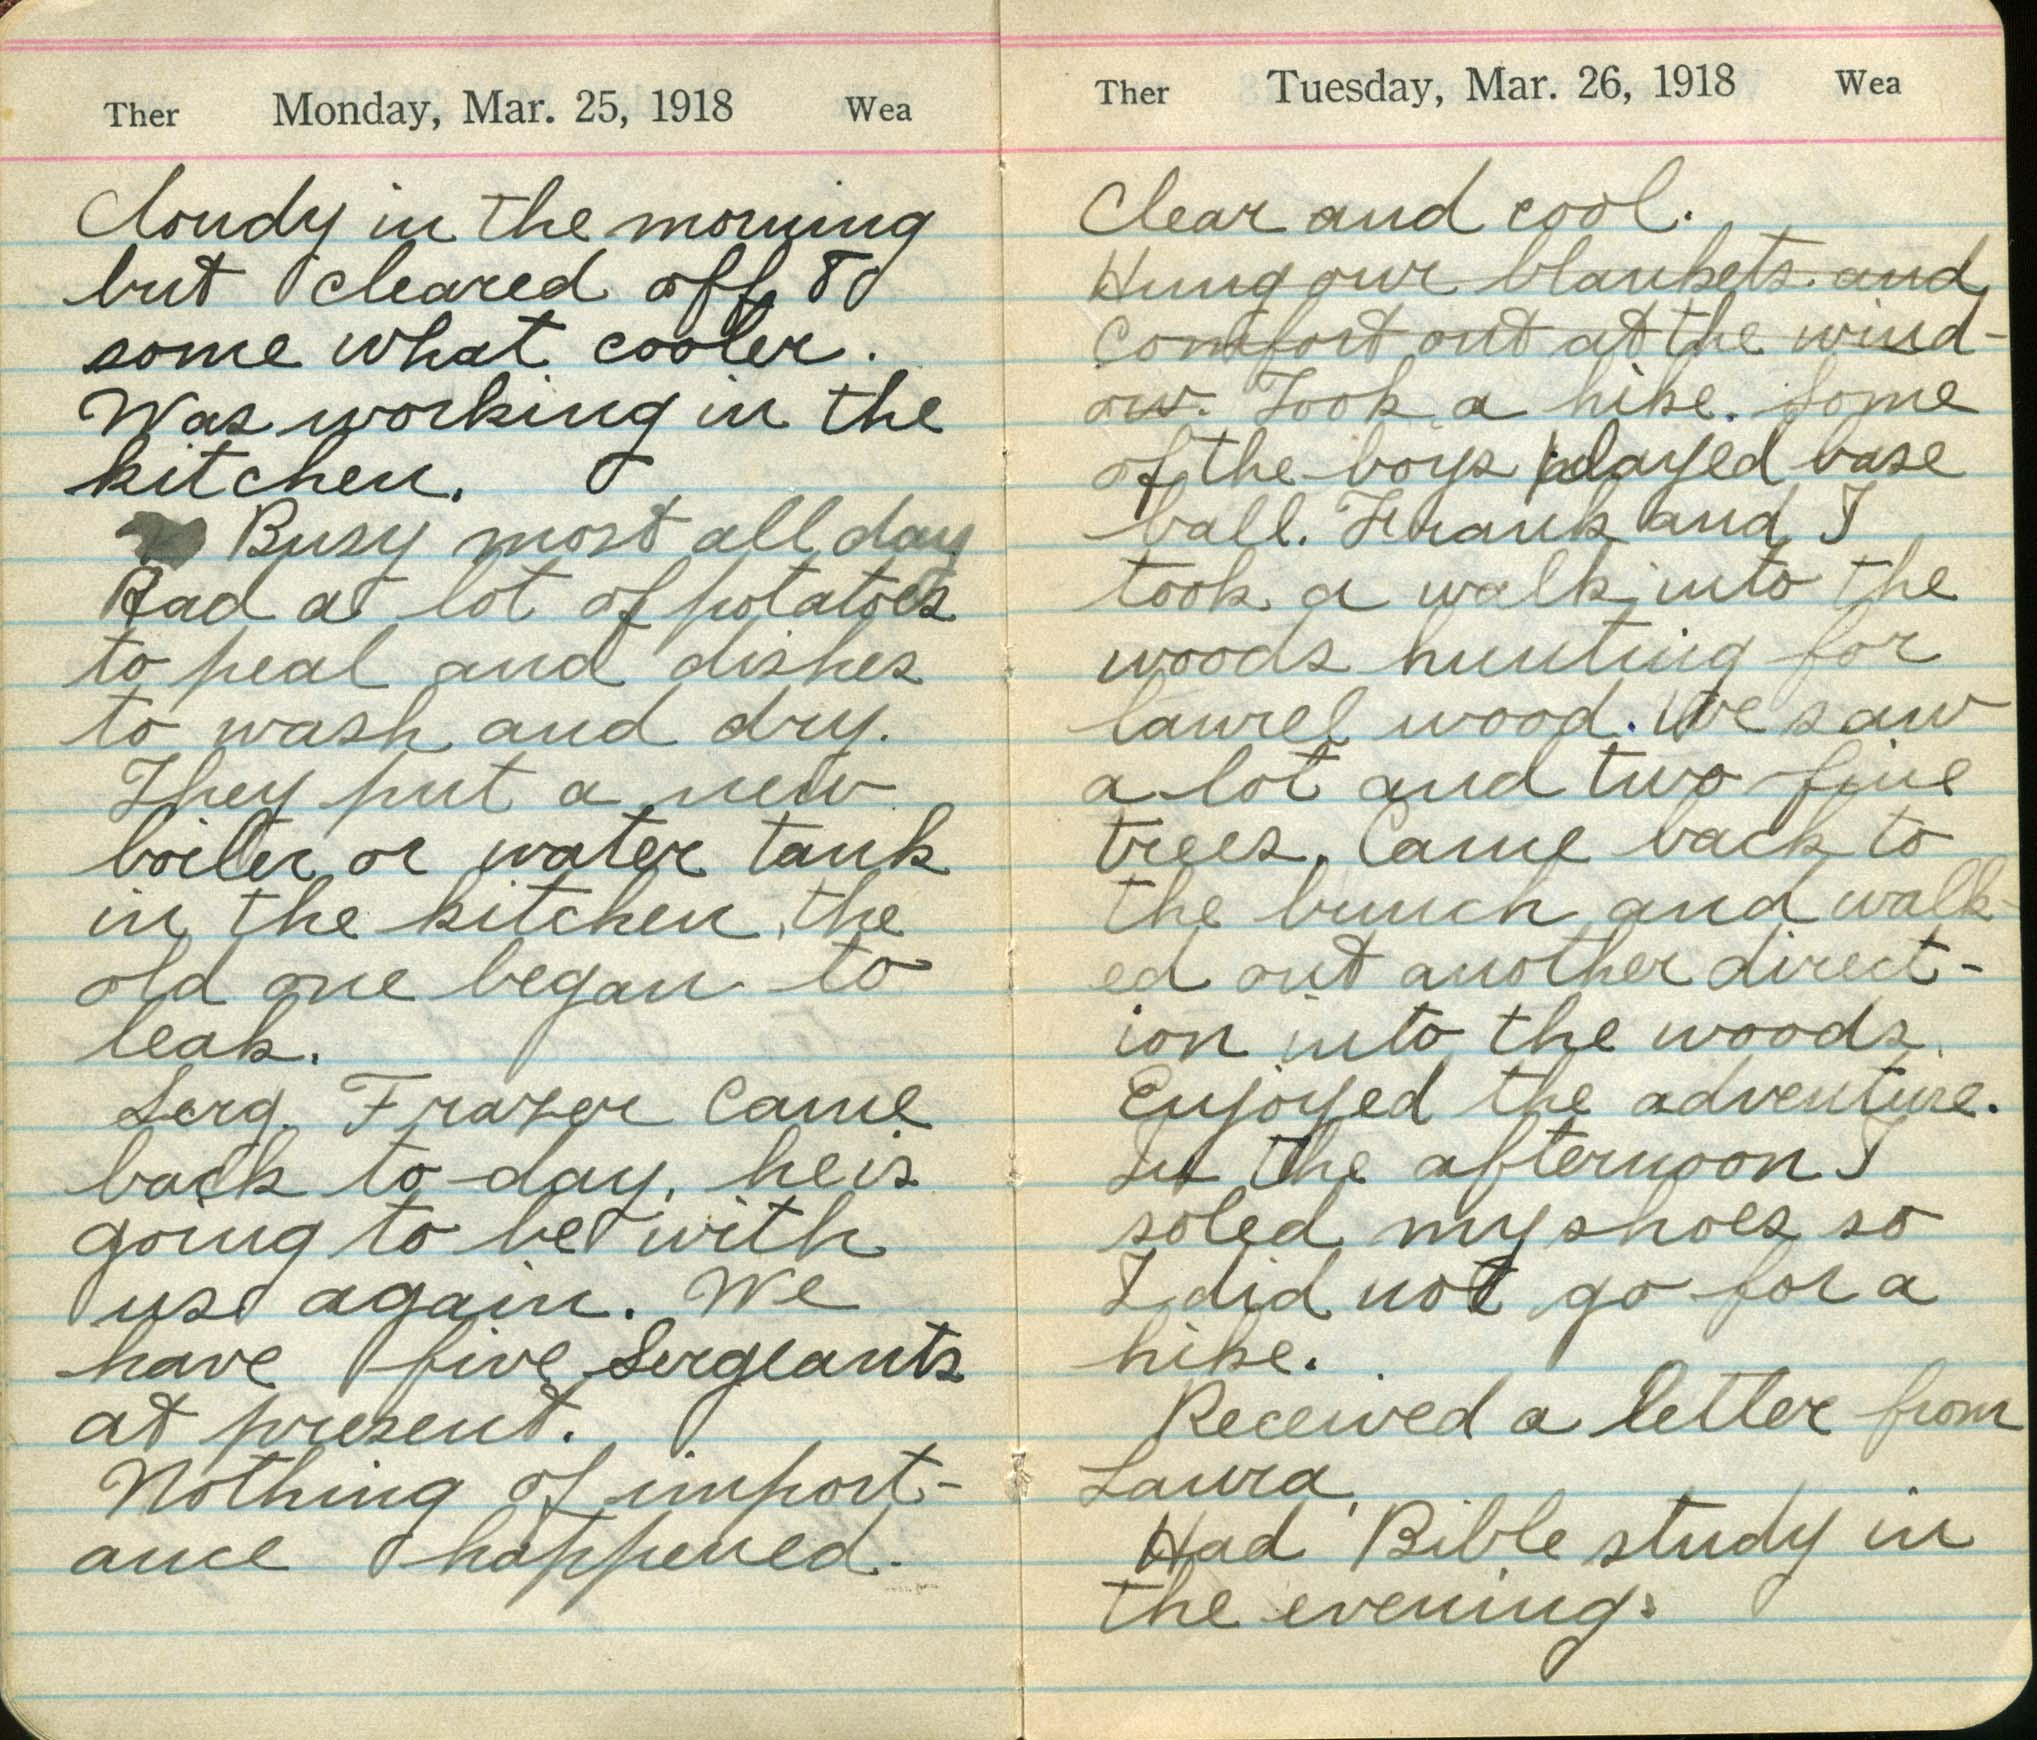 Ther Monday, Mar. 25, 1918 Wea
Cloudy in the morning
but cleared off &
some what cooler.
Was working in the
kitchen.
Busy most all day
Had a lot of potatoes
to peal and dishes
to wash and dry.
They put a new
boiler or water tank
in the kitchen, the
old one began to
leak.
Serg. Frazer came
back to-day, he is
going to be with
us again. We
have five Sergeants
at present.
Nothing of import-
ance happened.
Ther Tuesday, Mar. 26, 1918 Wea
Clear and cool.
Hung our blankets and
Comfort out at the wind-
ow. Took a hike. Some
of the boys played base
ball. Frank and I
took a walk into the
woods hunting for
laurel wood. We saw
a lot and two fine
trees. Came back to
the bunch and walk-
ed out another direct-
ion into the woods.
Enjoyed the adventure.
In the afternoon I
soled my shoes so
I did not go for a
hike.
Received a letter from
Laura.
Had Bible study in
the evening.